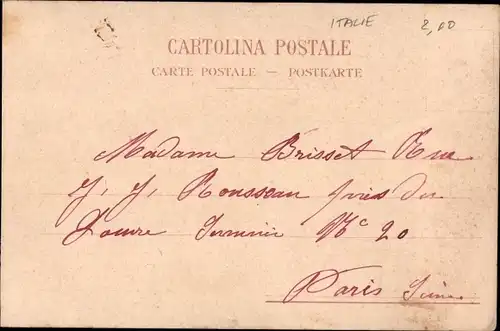 ITALIE 2,00
CARTOLINA POSTALE
CARTE POSTALE — POSTKARTE
Madame Brisset Rue
J. J. Rousseau près du
Louvre No 20
Paris Seine